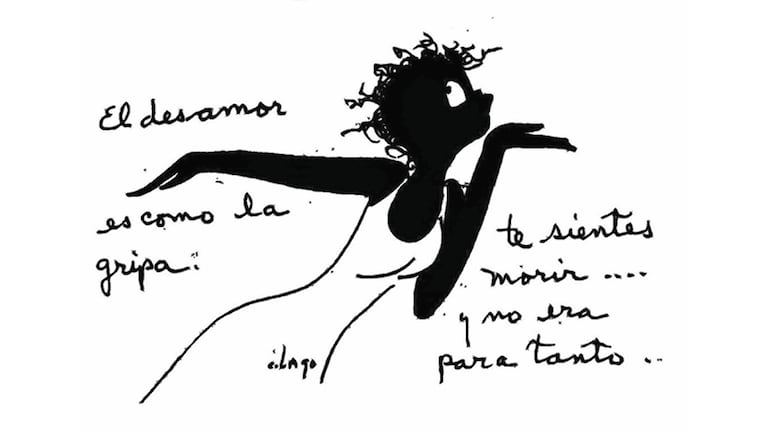 El desamor
es como la
gripa:
te sientes
morir ....
y no era
para tanto ..